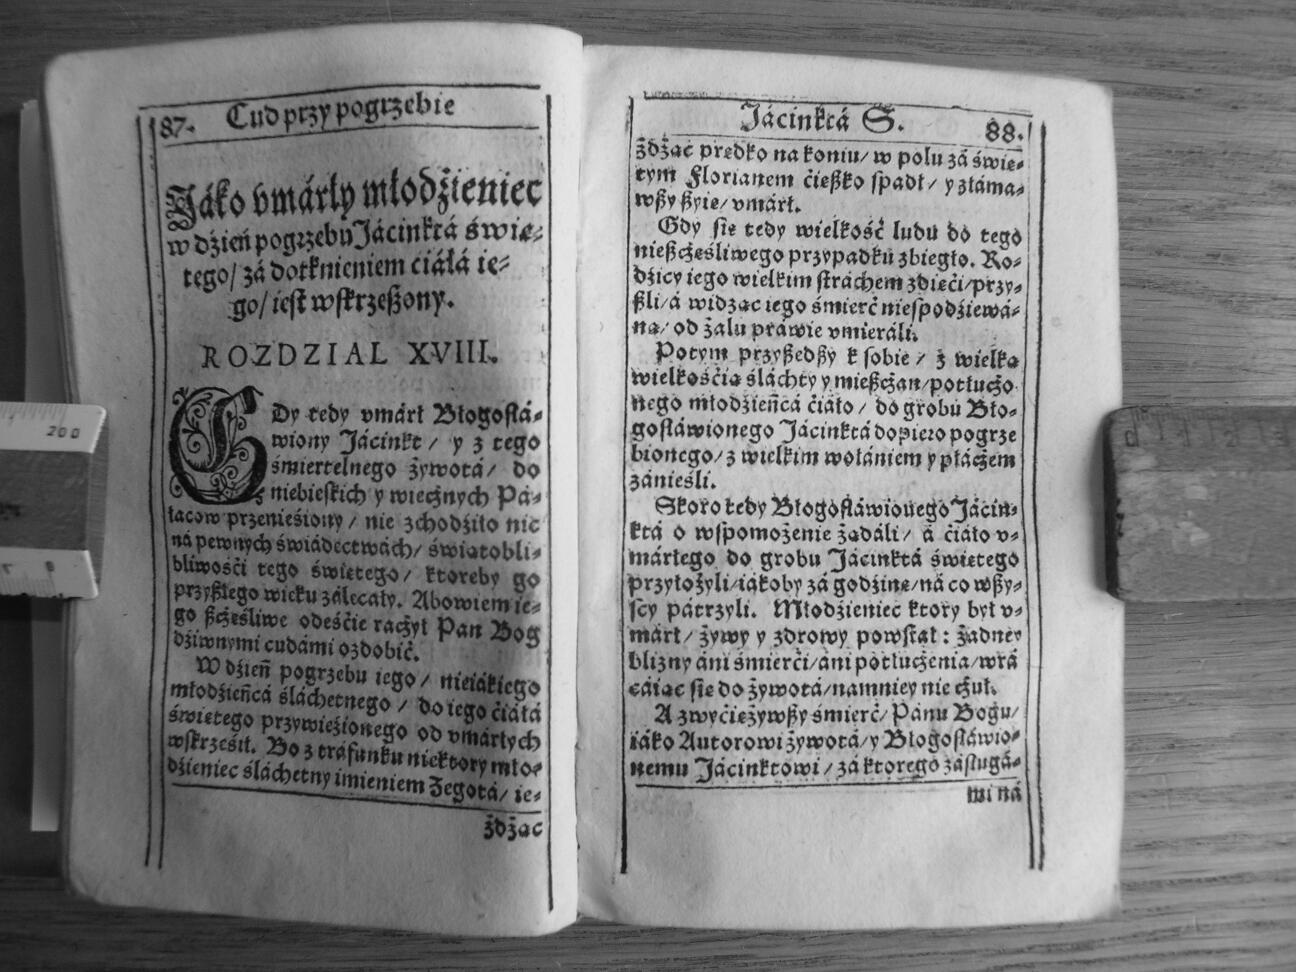 87. Cud przy pogrzebie
Jáko vmárły młodźieniec
w dźień pogrzebu Jácinktá świę⸗
tego/ zá dotknieniem ćiáłá ie⸗
go/ iest wskrzeszony.
ROZDZIAL XVIII.
GDy tedy vmárł Błogosłá⸗
wiony Jácinkt/ y z tego
śmiertelnego żywotá/ do
niebieskich y wiecżnych Pá⸗
łacow przenieśiony/ nie zchodźiło nic
ná pewnych świádectwách/ świątobli⸗
bliwośći tego świętego/ ktoreby go
przyszłego wieku zálecáły. Abowiem ie⸗
go szcżęśliwe odeśćie racżył Pan Bog
dźiwnymi cudámi ozdobić.
W dźień pogrzebu iego/ nieiákiego
młodźieńcá śláchetnego/ do iego ćiáłá
świętego przywieźionego od vmárłych
wskrześił. Bo z tráfunku niektory mło⸗
dźieniec śláchetny imieniem Żegotá/ ie⸗
żdżąc
Jácinktá S. 88.
żdżąc prędko na koniu/ w polu zá świę⸗
tym Florianem ćieszko spadł/ y złáma⸗
wszy szyię/ vmárł.
Gdy się tedy wielkość ludu do tego
nieszcżęśliwego przypadku zbiegło. Ro⸗
dźicy iego wielkim stráchem zdięći/ przy⸗
szli/ á widząc iego śmierć niespodźiewá⸗
ną/ od żalu práwie vmieráli.
Potym przyszedszy k sobie/ z wielką
wielkośćią śláchty y mieszcżan/ potłucżo
nego młodźieńcá ćiáło/ do grobu Bło⸗
gosłáwionego Jácinktá dopiero pogrze
bionego/ z wielkim wołániem y płácżem
zánieśli.
Skoro tedy Błogosłáwionego Jácin⸗
ktá o wspomożenie żądáli/ á ćiáło v⸗
márłego do grobu Jácinktá świętego
przyłożyli/ iákoby zá godźinę/ ná co wszy⸗
scy pátrzyli. Młodźieniec ktory był v⸗
márł/ żywy y zdrowy powstał: żadney
blizny áni śmierći/ áni potłucżenia/ wrá
cáiąc się do żywotá/ namniey nie cżuł.
A zwyćiężywszy śmierć/ Pánu Bogu/
iáko Autorowi żywotá/ y Błogosłáwio⸗
nemu Jácinktowi/ zá ktorego zásługá⸗
mi ná
200